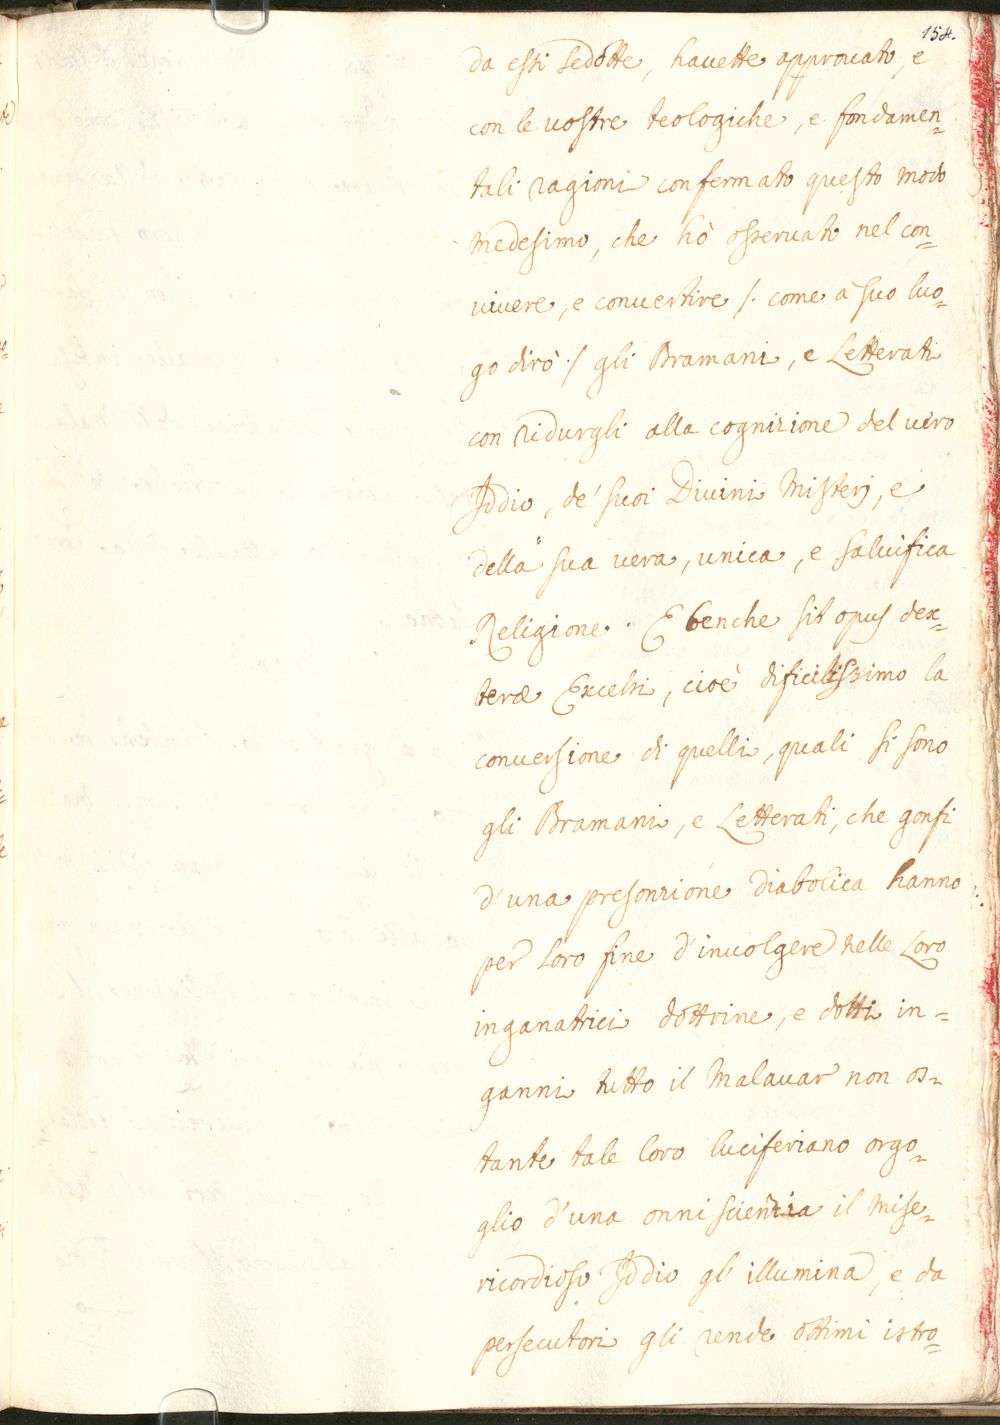 154.
da essi sedotte, hauette approuato, e
con le uostre teologiche, e fondamen=
tali ragioni confermato questo modo
medesimo, che hò osseruato nel con=
uiuere, e conuertire /. come à suo luo=
go dirò ./ gli Bramani, e Letterati
con ridurgli alla cognizione del uero
Iddio, de' suoi Diuini Misterj, e
della sua uera, unica, e saluifica
Religione. E benche sit opus dex=
teræ Excelsi, cioè dificilissimo la
conuersione di quelli, quali si sono
gli Bramani, e Letterati, che gonfi
d'una presonzione Diabolica hanno
per loro fine d'inuolgere nelle Loro
inganatrici dottrine, e dotti in=
ganni tutto il Malauar non os=
tante tale loro luciferiano orgo=
glio d'una onniscienzia il mise=
ricordioso Iddio gl' illumina, e da
persecutori gli rende ottimi istro=